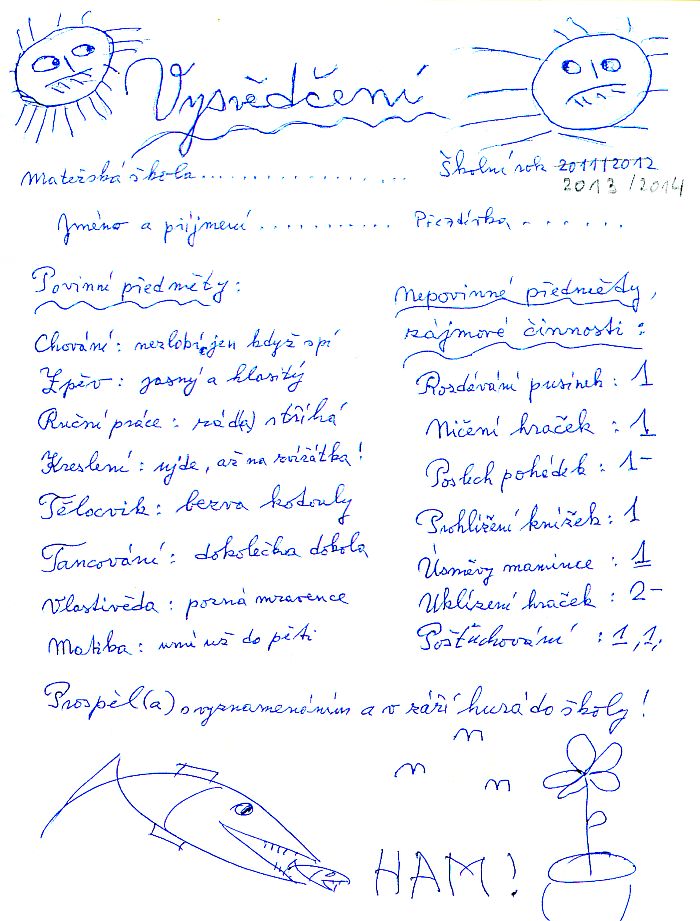 Vysvědčení
Mateřská škola.................. Školní rok 2011/2012
2013/2014
Jméno a příjmení............ Přezdívka.......
Povinné předměty:
Chování: nezlobí, jen když spí
Zpěv: jasný a hlasitý
Ruční práce: rád(a) stříhá
Kreslení: ujde, až na zvířátka!
Tělocvik: bezva kotouly
Tancování: dokolečka dokola
Vlastivěda: pozná mravence
Matika: umí už do pěti
Nepovinné předměty,
zájmové činnosti:
Rozdávání pusinek: 1
Ničení hraček: 1
Poslech pohádek: 1-
Prohlížení knížek: 1
Úsměvy mamince: 1
Uklízení hraček: 2-
Pošťuchování: 1,1.
Prospěl(a) s vyznamenáním a v září hurá do školy!
HAM!